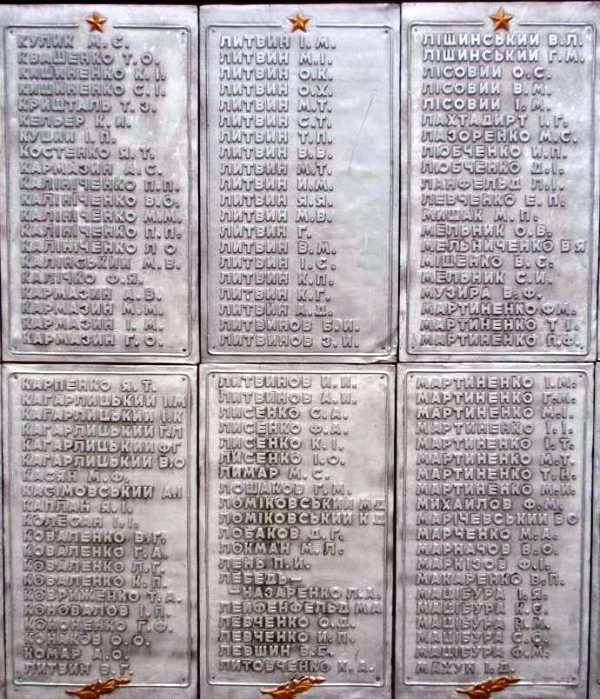 КУЛИК М.Є.
КВАШЕНКО Т.О.
КИШИНЕНКО К.І.
КИШИНЕНКО С.І.
КРИШТАЛЬ Т.З.
КЕЛЬЕР К.И.
КУШКИ І.П.
КОСТЕНКО Я.Т.
КАРМАЗИН А.С.
КАЛІНІЧЕНКО П.П.
КАЛІНІЧЕНКО В.О.
КАЛІНІЧЕНКО М.М.
КАЛІНІЧЕНКО П.П.
КАЛІНІЧЕНКО Л О
КАЛІНСЬКИЙ М.В.
КАЛІЧКО Ф.Я.
КАРМАЗИН А.В.
КАРМАЗИН М.М.
КАРМАЗИН І.М.
КАРМАЗИН Г.О.
ЛИТВИН І.М.
ЛИТВИН М.І.
ЛИТВИН О.К.
ЛИТВИН О.Х.
ЛИТВИН М.Т.
ЛИТВИН С.Т.
ЛИТВИН Т.П.
ЛИТВИН В.В.
ЛИТВИН М.Т.
ЛИТВИН И.М.
ЛИТВИН Я.Я.
ЛИТВИН М.В.
ЛИТВИН Г.
ЛИТВИН В.М.
ЛИТВИН І.Є.
ЛИТВИН К.П.
ЛИТВИН К.Г.
ЛИТВИН А.Д.
ЛИТВИНОВ Б.И.
ЛИТВИНОВ З.И.
ЛІШИНСЬКИЙ В.Л.
ЛІШИНСЬКИЙ Г.М.
ЛІСОВИЙ О.С.
ЛІСОВИЙ В.М.
ЛІСОВИЙ І.М.
ЛАХТАДИРТ І.Г.
ЛАЗОРЕНКО М.С.
ЛЮБЧЕНКО И.П.
ЛЮБЧЕНКО Д.І.
ЛАНФЕЛЬД Л.І.
ЛЕВЧЕНКО Е.П.
МИШАК М.П.
МЕЛЬНИК О.В.
МЕЛЬНИЧЕНКО В Я
МІЩЕНКО В.Є.
МЕЛЬНИК С.И.
МУЗИРА В.Ф.
МАРТИНЕНКО Ф.М.
МАРТИНЕНКО Т І.
МАРТИНЕНКО П.Ф.
КАРПЕНКО Я.Т.
КАГАРЛИЦЬКИЙ І.М
КАГАРЛИЦЬКИЙ І.К
КАГАРЛИЦЬКИЙ Г.Л
КАГАРЛИЦЬКИЙ Ф Г
КАГАРЛИЦЬКИЙ В.Ю
КАСЯН М.Ф.
КАСІМОВСЬКИЙ
КАПЛАН Я.І.
КОЛЕСАН І.І.
КОВАЛЕНКО В.Г.
КОВАЛЕНКО Г.А.
КОВАЛЕНКО Л.Г.
КОВАЛЕНКО К.П.
КОВРИЖЕНКО Т.А.
КОНОВАЛОВ І.П.
КОНОНЕНКО Г.Ф.
КОНАКОВ О.О.
КОМАР А.О.
ЛИТВИН В.Г.
ЛИТВИНОВ И.И.
ЛИТВІНОВ А.И.
ЛИСЕНКО С.А.
ЛИСЕНКО Ф.А.
ЛИСЕНКО К.І.
ЛИСЕНКО І.О.
ЛИМАР М.С.
ЛОШАКОВ Г.М.
ЛОМІКОВСЬКИЙ М Д
ЛОМІКОВСЬКИЙ К Д
ЛОБАКОВ Д.Г.
ЛОКМАН М.П.
ЛЕНЬ П.И.
ЛЕБЕДЬ–
–НАЗАРЕНКО Л.А.
ЛЕЙФЕНФЕЛЬД М.А
ЛЕВЧЕНКО О.Д.
ЛЕВЧЕНКО И.П.
ЛЕВШИН В.Б.
ЛИТОВЧЕНКО К.А.
МАРТИНЕНКО І.М.
МАРТИНЕНКО Г.М.
МАРТИНЕНКО М.І.
МАРТИНЕНКО І.І.
МАРТИНЕНКО І.Т.
МАРТИНЕНКО М.Т.
МАРТИНЕНКО Т.Н.
МАРТИНЕНКО М.И.
МИХАЙЛОВ Ф.М.
МАРІЧЕВСЬКИЙ В О
МАРЧЕНКО М.А.
МАРНАЧОВ В.О.
МАРКІЗОВ Ф.І.
МАКАРЕНКО В.П.
МАЦІБУРА І.Я.
МАЦІБУРА К.Є.
МАЦІБУРА П.М.
МАЦІБУРА С.О.
МАЦІБУРА Ф.М.
МАХУН І.Д.